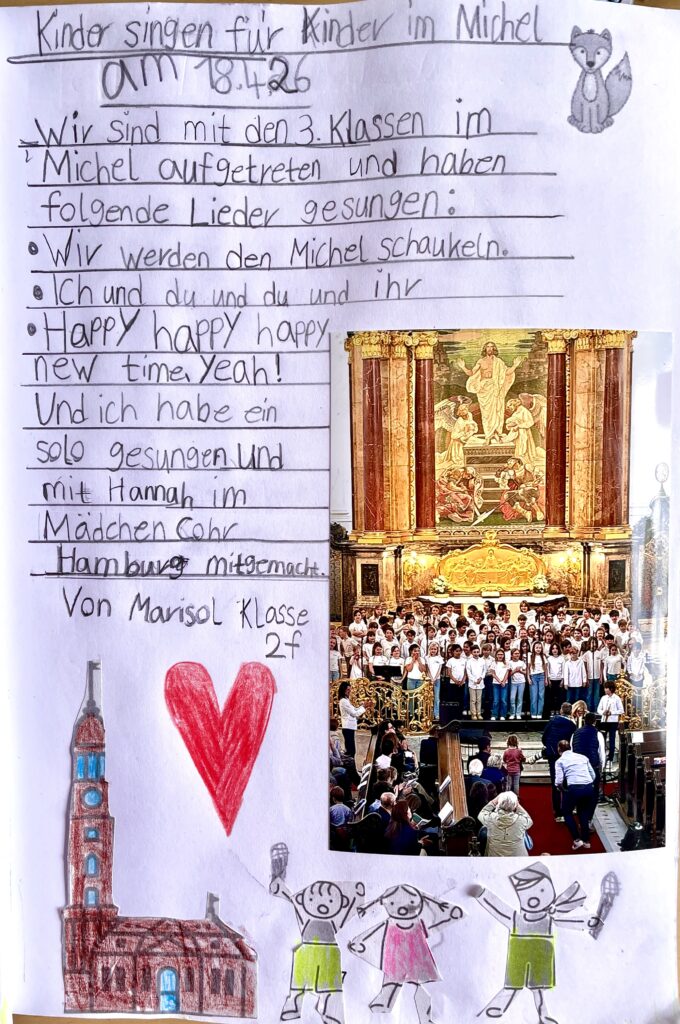 Kinder singen für Kinder im Michel
am 18.4.26
Wir sind mit den 3. Klassen im
Michel aufgetreten und haben
folgende Lieder gesungen:
• Wir werden den Michel schaukeln.
• Ich und du und du und ihr
• Happy happy happy
new time, Yeah!
Und ich habe ein
solo gesungen Und
mit Hannah im
Mädchen Cohr
Hamburg mitgemacht.
Von Marisol Klasse
2f